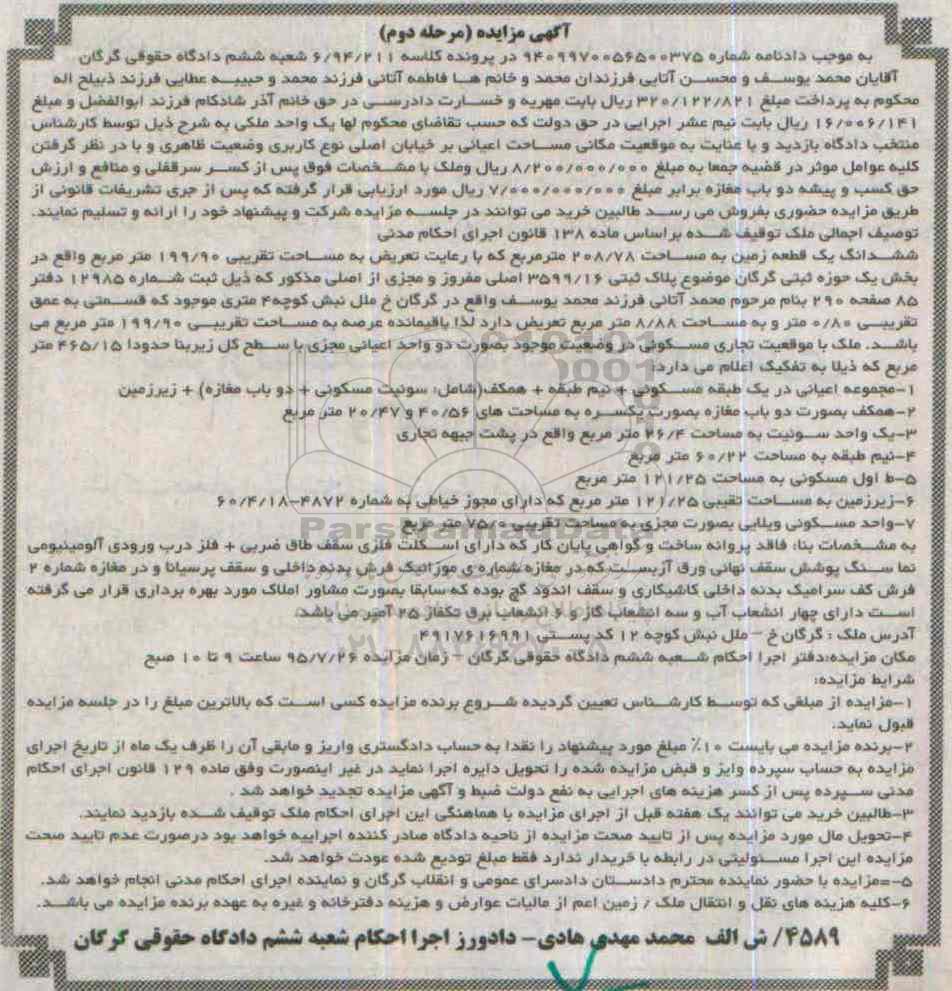 آگهی مزایده (مرحله دوم)
به موجب دادنامه شماره ۹۴۰۹۹۷۰۰۵۶۵۰۰۳۷۵ در پرونده کلاسه ۶/۹۴/۲۱۱ شعبه ششم دادگاه حقوقی گرگان
آقایان محمد یوسف و محسن آتایی فرزندان محمد و خانم ها فاطمه آتائی فرزند محمد و حبیبه عطایی فرزند ذبیلح اله
محکوم به پرداخت مبلغ ۳۲۰/۱۲۲/۸۲۱ ریال بابت مهریه و خسارت دادرسی در حق خانم آذر شادکام فرزند ابوالفضل و مبلغ
۱۶/۰۰۶/۱۴۱ ریال بابت نیم عشر اجرایی در حق دولت که حسب تقاضای محکوم لها یک واحد ملکی به شرح ذیل توسط کارشناس
منتخب دادگاه بازدید و با عنایت به موقعیت مکانی مساحت اعیانی بر خیابان اصلی نوع کاربری وضعیت ظاهری و با در نظر گرفتن
کلیه عوامل موثر در قضیه جمعا به مبلغ ۸/۲۰۰/۰۰۰/۰۰۰ ریال وملک با مشخصات فوق پس از کسر سرقفلی و منافع و ارزش
حق کسب و پیشه دو باب مغازه برابر مبلغ ۷/۰۰۰/۰۰۰/۰۰۰ ریال مورد ارزیابی قرار گرفته که پس از جری تشریفات قانونی از
طریق مزایده حضوری بفروش می رسد طالبین خرید می توانند در جلسه مزایده شرکت و پیشنهاد خود را ارائه و تسلیم نمایند.
توصیف اجمالی ملک توقیف شده براساس ماده ۱۳۸ قانون اجرای احکام مدنی
ششدانگ یک قطعه زمین به مساحت ۲۰۸/۷۸ مترمربع که با رعایت تعریض به مساحت تقریبی ۱۹۹/۹۰ متر مربع واقع در
بخش یک حوزه ثبتی گرگان موضوع پلاک ثبتی ۳۵۹۹/۱۶ اصلی مفروز و مجزی از اصلی مذکور که ذیل ثبت شماره ۱۲۹۸۵ دفتر
۸۵ صفحه ۲۹۰ بنام مرحوم محمد آتائی فرزند محمد یوسف واقع در گرگان خ ملل نبش کوچه۴ متری موجود که قسمتی به عمق
تقریبی ۰/۸۰ متر و به مساحت ۸/۸۸ متر مربع تعریض دارد لذا باقیمانده عرصه به مساحت تقریبی ۱۹۹/۹۰ متر مربع می
باشد. ملک با موقعیت تجاری مسکونی در وضعیت موجود بصورت دو واحد اعیانی مجزی با سطح کل زیربنا حدودا ۴۶۵/۱۵ متر
مربع که ذیلا به تفکیک اعلام می دارد:
۱-مجموعه اعیانی در یک طبقه مسکونی + نیم طبقه + همکف(شامل: سوئیت مسکونی + دو باب مغازه) + زیرزمین
۲-همکف بصورت دو باب مغازه بصورت یکسره به مساحت های ۴۰/۵۶ و ۲۰/۴۷ متر مربع
۳-یک واحد سوئیت به مساحت ۲۶/۴ متر مربع واقع در پشت جبهه تجاری
۴-نیم طبقه به مساحت ۶۰/۲۲ متر مربع
۵-ط اول مسکونی به مساحت ۱۲۱/۲۵ متر مربع
۶-زیرزمین به مساحت تقیبی ۱۲۱/۲۵ متر مربع که دارای مجوز خیاطی به شماره ۴۸۷۲-۶۰/۴/۱۸
۷-واحد مسکونی ویلایی بصورت مجزی به مساحت تقریبی ۷۵/۰ متر مربع
به مشخصات بنا: فاقد پروانه ساخت و گواهی پایان کار که دارای اسکلت فلزی سقف طاق ضربی + فلز درب ورودی آلومینیومی
نما سنگ پوشش سقف نهائی ورق آزبست که در مغازه شماره ی موزائیک فرش بدنه داخلی و سقف پرسیانا و در مغازه شماره ۲
فرش کف سرامیک بدنه داخلی کاشیکاری و سقف اندود گچ بوده که سابقا بصورت مشاور املاک مورد بهره برداری قرار می گرفته
است دارای چهار انشعاب آب و سه انشعاب گاز و ۶ انشعاب برق تکفاز ۲۵ آمپر می باشد.
آدرس ملک : گرگان خ – ملل نبش کوچه ۱۲ کد پستی ۴۹۱۷۶۱۶۹۹۱
مکان مزایده:دفتر اجرا احکام شعبه ششم دادگاه حقوقی گرگان – زمان مزایده ۹۵/۷/۲۶ ساعت ۹ تا ۱۰ صبح
شرایط مزایده:
۱-مزایده از مبلغی که توسط کارشناس تعیین گردیده شروع برنده مزایده کسی است که بالاترین مبلغ را در جلسه مزایده
قبول نماید.
۲-برنده مزایده می بایست ۱۰٪ مبلغ مورد پیشنهاد را نقدا به حساب دادگستری واریز و مابقی آن را ظرف یک ماه از تاریخ اجرای
مزایده به حساب سپرده وایز و قبض مزایده شده را تحویل دایره اجرا نماید در غیر اینصورت وفق ماده ۱۲۹ قانون اجرای احکام
مدنی سپرده پس از کسر هزینه های اجرایی به نفع دولت ضبط و آگهی مزایده تجدید خواهد شد .
۳-طالبین خرید می توانند یک هفته قبل از اجرای مزایده با هماهنگی این اجرای احکام ملک توقیف شده بازدید نمایند.
۴-تحویل مال مورد مزایده پس از تایید صحت مزایده از ناحیه دادگاه صادر کننده اجراییه خواهد بود درصورت عدم تایید صحت
مزایده این اجرا مسئولیتی در رابطه با خریدار ندارد فقط مبلغ تودیع شده عودت خواهد شد.
۵-=مزایده با حضور نماینده محترم دادستان دادسرای عمومی و انقلاب گرگان و نماینده اجرای احکام مدنی انجام خواهد شد.
۶-کلیه هزینه های نقل و انتقال ملک / زمین اعم از مالیات عوارض و هزینه دفترخانه و غیره به عهده برنده مزایده می باشد.
۴۵۸۹/ ش الف محمد مهدی هادی- دادورز اجرا احکام شعبه ششم دادگاه حقوقی گرگان
ParsNamadData